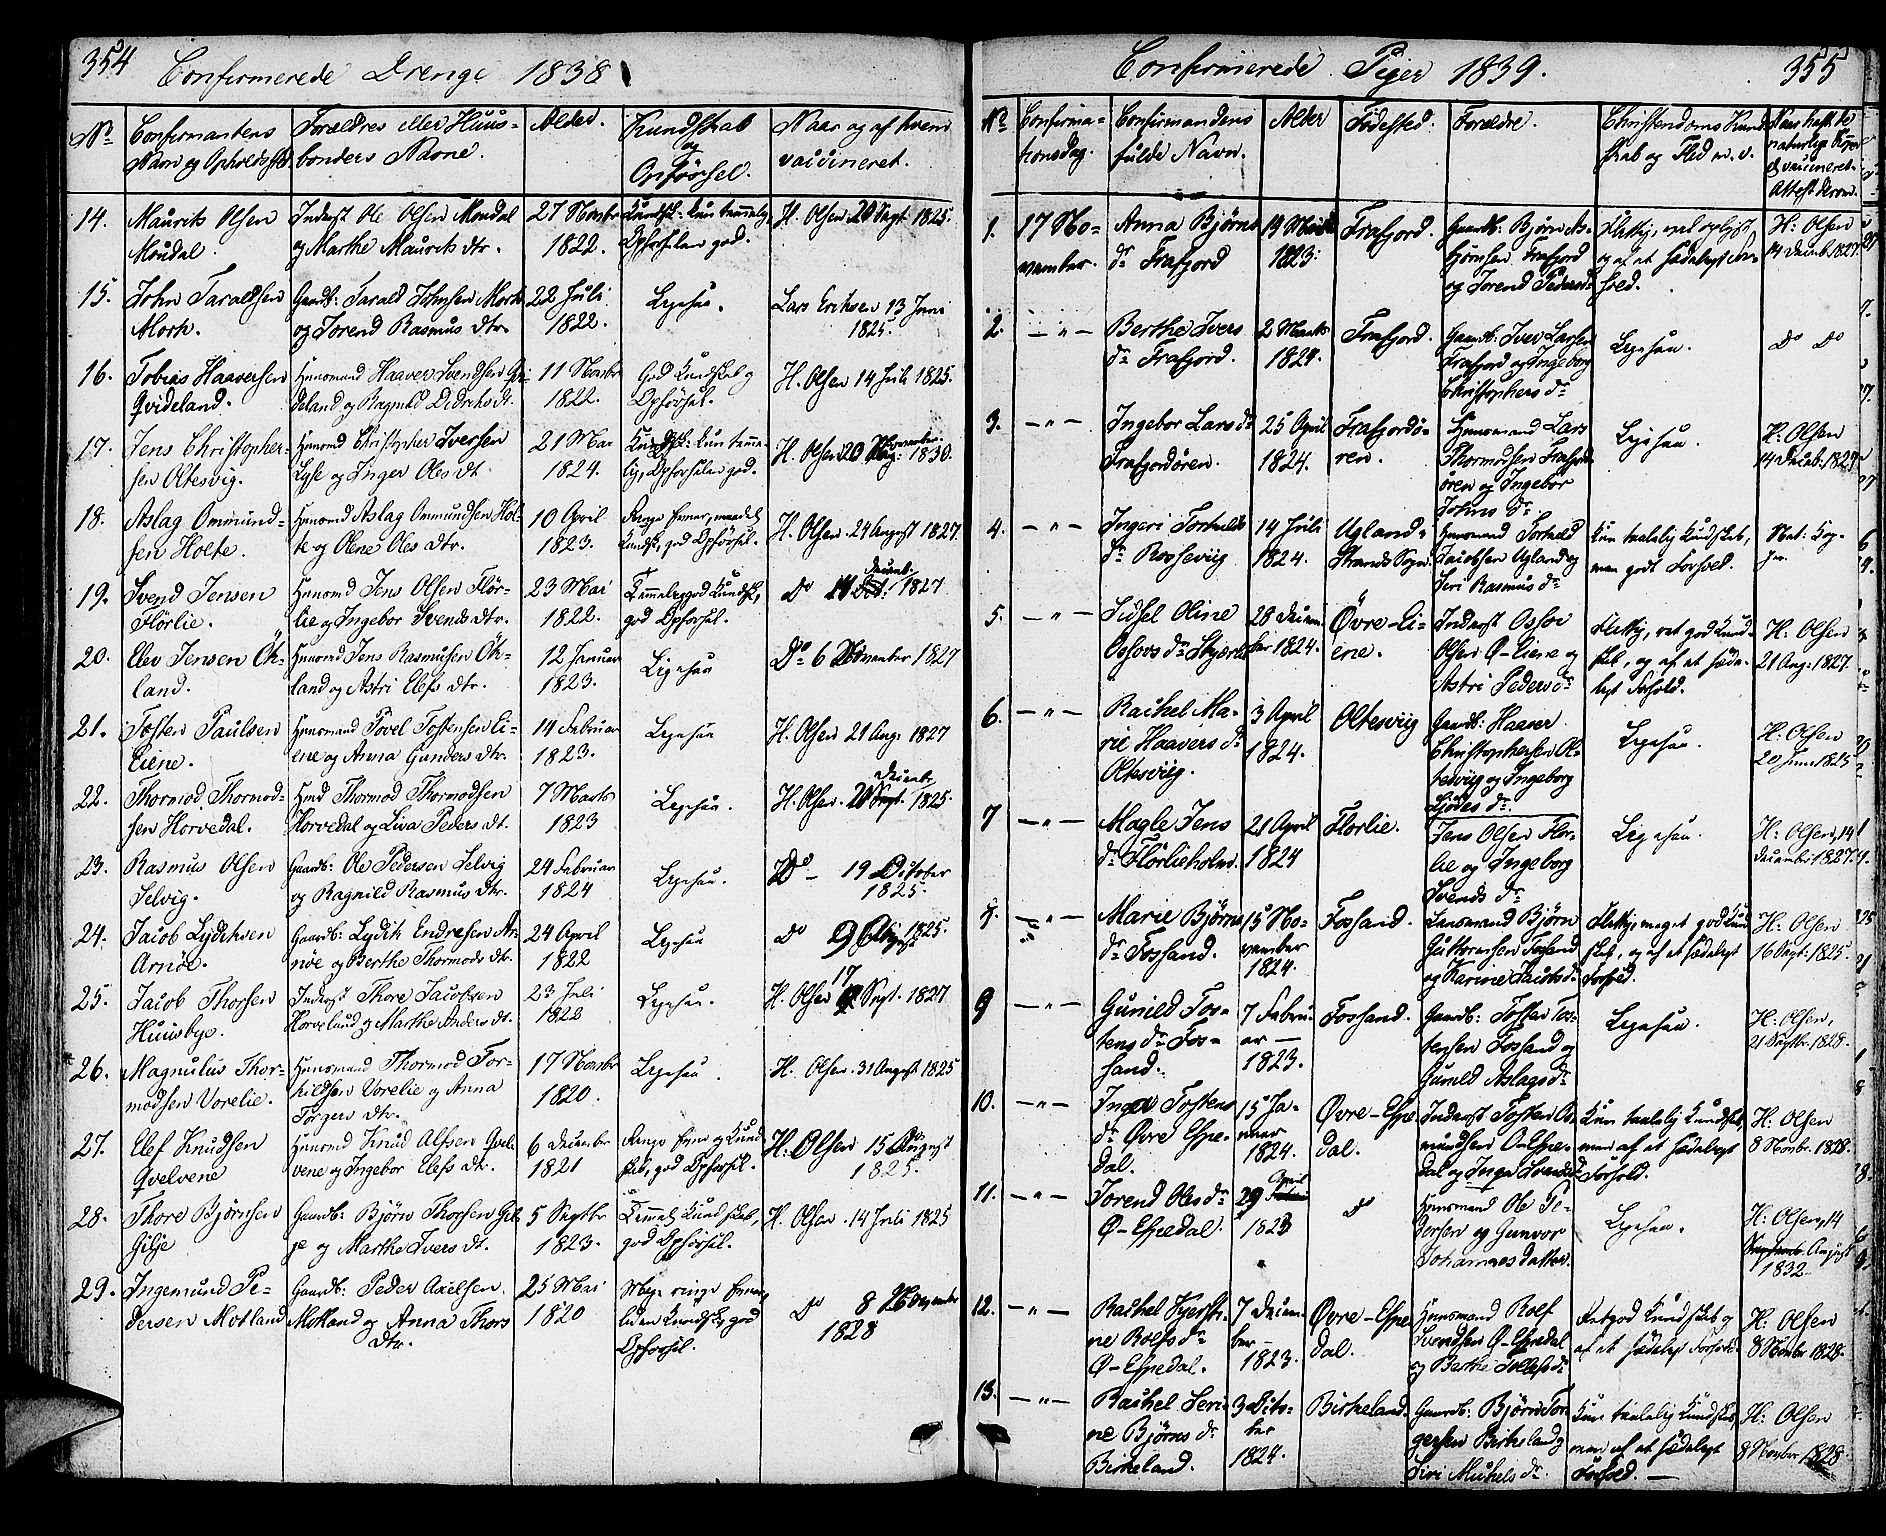 354
Confirmerede Drenge 1838
No
Confirmantens
Navn og Opholdssted
Forældres eller Huus-
bonders Navne.
Alder.
Kundskab
og
Opførsel.
Naar og af hvem
vaccineret.
14.
Maurits Olsen
Moudal.
Inderst Ole Olsen Moudal
og Marthe Maurits dtr.
27 Novbr
1822.
Kundsk: kun temmelig,
Opførselen god.
H. Olsen 20 Sept. 1825.
15.
John Taraldsen
Mork.
Gaardb: Tarald Johnsen Mork
og Jorend Rasmus dtr.
22 Juli
1822.
Ligesaa.
Lars Eriksen 13 Juni
1825.
16.
Tobias Haaversen
Qvideland.
Huusmand Haaver Svendsen Qvi-
deland og Ragnild Didriks dt.
11 Novbr
1822.
God Kundskab og
Opførsel.
H. Olsen 14 Juli 1825.
17.
Jens Christopher-
sen Oltesvig.
Huusmd Christopher Iversen
Lyse og Inger Oles dt.
21 Mai
1824.
Kundsk: kun temme-
lig, Opførselen god.
H. Olsen 20 November 1830.
18.
Aslag Ommund-
sen Holte.
Huusmd Aslag Ommundsen Hol-
te og Olene Oles dtr.
10 April
1823.
Ringe Evner, maadel
Kundsk, god Opførsel.
H. Olsen 21 August 1827.
19.
Svend Jensen
Flörlie.
Huusmd Jens Olsen Flör-
lie og Ingebor Svends dtr.
23 Mai
1822.
Temmelig god Kundsk,
god Opførsel.
Do 14 Decemb. 1827
20.
Elev Jensen Ök-
land.
Huusmd Jens Rasmusen Ök-
land og Astri Elefs dtr.
12 Januar
1823.
Ligesaa
Do 6 November 1827
21.
Tosten Paulsen
Eiene.
Huusmand Povel Tostensen Ei-
ene og Anna Gunders dtr.
14 Februar
1823.
Ligesaa
H. Olsen 21 Aug. 1827
22.
Thormod Thormod-
sen Horvedal.
Husmd Thormod Thormodsen
Horvedal og Liva Peders dt.
7 Marts
1823
Ligesaa.
H. Olsen 20 Decembr 1825.
23.
Rasmus Olsen
Selvig.
Gaardb: Ole Pedersen Selvig
og Ragnild Rasmus dtr.
24 Februar
1824
Ligesaa.
Do — 19 October
1825.
24.
Jacob Lydiksen
Arnöe.
Gaardb: Lydik Endresen Ar-
nöe og Berthe Thormods dtr.
24 April
1822
Ligesaa
Do 9 August 1825.
25.
Jacob Thorsen
Huusbye.
Inderst Thore Jacobsen
Horveland og Marthe Anders dt.
23 Juli
1822
Ligesaa.
H. Olsen 17 Sept. 1827
26.
Magnulus Thor-
modsen Vorelie.
Huusmand Thormod Tor-
kildsen Vorelie og Anna
Torgers dtr.
17 Novbr
1820.
Ligesaa.
H. Olsen. 31 August 1825
27.
Elef Knudsen
Qvelvene
Huusmd Knud Alfsen Qvel-
vene og Ingebor Elefs dt.
6 December
1821
Ringe Evne og Kund
skab, god Opførsel.
H. Olsen 15 August
1825.
28.
Thore Bjørnsen
Gilje
Gaardb: Bjørn Thorsen Gil-
je og Marthe Ivers dt.
5 Septbr
1823.
Temmel Kundskab,
god Opførsel.
H. Olsen. 14 Juli 1825
29.
Ingemund Pe-
dersen Motland
Gaardb: Peder Axelsen.
Motland og Anna Thors
dtr.
25 Mai
1820
Meget ringe Evner,
liden Kundsk, god
Opførsel.
Do 8 November
1828
Confirmerede Piger 1839.
355
No
Confirma-
tionsdag.
Confirmandens
fulde Navn.
Alder
Fødested.
Forældre.
Christendoms Kund
skab og Flid m. v.
Naar havt de
naturlige Kopper
el. vaccineret.
Attest derom.
1.
17 No-
vember.
Anna Bjørns
dr Frafjord
19 Marts
1823.
Frafjord.
Gaardb: Bjørn As-
bjørnsen Frafjord
og Jorend Peders dr
Flittig, vel oplyst,
og af et sædeligt For-
hold.
H: Olsen
14 Decemb 1827.
2.
— " —
Berthe Ivers
dr Frafjord.
2 Marts
1824.
Frafjord.
Gaardb: Iver Larsen
Frafjord og Ingeborg
Christophers dr
Ligesaa.
Do Do
3.
— " —
Ingebor Lars dr
Frafjordören.
25 April
1824.
Frafjordö-
ren.
Huusmand Lars
Thormodsen Frafjord-
ören og Ingebor
Johns dr
Ligesaa.
H: Olsen
14 Decemb: 1827
4.
— " —
Ingeri Torkilds
dr Rosseviig
14 Juli
1824.
Ugland-
Strands Sogn.
Huusmand Torkild
Jacobsen Ugland og
Siri Rasmus dr
Kun taalelig Kundskab,
men godt Forhold.
Nat: Kop-
per.
5.
— " —
Sidsel Oline
Osmunds dr Skjæret
28 Decem-
ber 1824.
Övre-Ei-
ene.
Inderst Ossov
Olsen Ø-Eiene og
Astri Peders dr
Flittig, ret god Kund-
skab, og af et sæde-
ligt Forhold.
H: Olsen
21 Aug: 1827.
6.
— " —
Rachel Ma-
rie Haavers dr
Oltesviig.
3 April
1824.
Oltesviig
Gaardb: Haaver
Christophersen Ol-
tesviig og Ingeborg
Ligesaa.
H: Olsen
20 Juni 1825
7
— " —
Magle Jens
dr Flörlieholm.
21 April
1824
Florlie.
Jens Olsen Flor-
lie og Ingeborg
Svends dr
Ligesaa.
H: Olsen, 14
December 1827.
8.
— " —
Marie Bjørns
dr Fossand.
15 No-
vember
1824.
Fossand.
Lensmand Bjørn
Guttormsen Fossand
og Karine Jacobs dr
Flittig, meget god Kund
skab, og af et sædeligt
Forhold.
H: Olsen
16 Sept: 1825.
9
— " —
Gunild Tos-
tens dr Fos-
sand.
7 Febru-
ar —
1823.
Fossand.
Gaardb: Tosten Tos-
tensen Fossand og
Gunild Aslags dr
Ligesaa.
H: Olsen,
21 Septbr. 1828.
10.
— " —
Inga Tostens
dr Övre Espe-
dal.
15 Ja-
nuar
1824.
Övre-Espe
dal.
Inderst Tosten Os-
mundsen Ö-Espe-
dal og Inga Svends dr
Kun taalelig Kundskab,
men af et sædeligt
Forhold.
H: Olsen
8 Novbr. 1828.
11.
— " —
Jorend Oles dr
Ö-Espedal.
29 April
1823
do
Huusmand Ole Pe-
dersen og Gunvor
Johannesdatter
Ligesaa.
H: Olsen, 14
August
1832.
12.
— " —
Rachel Kjersti-
ne Rolfs dr
Ö-Espedal.
7 Decem-
ber —
1823.
Övre-Espe
dal.
Huusmand Rolf
Svendsen Ö-Espedal
og Berthe Tollefs dr
Ret god Kundskab og
af et sædeligt Forhold.
H: Olsen
8 Novbr. 1828.
13.
— " —
Rachel Seri-
ne Bjørns dr
Birkeland.
3 Octo-
ber
1824.
Birkeland.
Gaardb: Bjørn Tor-
gersen Birkeland og
Siri Michels dr.
Kun taalelig Kundskab,
men af et sædeligt
Forhold. —
H: Olsen
8 Novbr 1828.